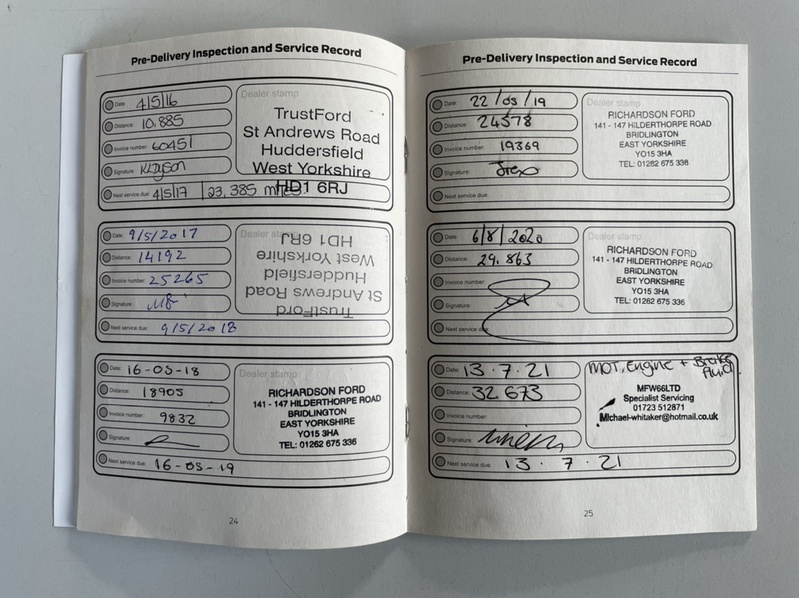 Pre-Delivery Inspection and Service Record
Date: 4/5/16
Distance: 10,885
Invoice number: 60451
Signature:
Next service due: 4/5/17 23,385 miles
Dealer stamp
TrustFord
St Andrews Road
Huddersfield
West Yorkshire
HD1 6RJ
Date: 9/5/2017
Distance: 14192
Invoice number: 25265
Signature:
Next service due: 9/5/2018
Dealer stamp
TrustFord
St Andrews Road
Huddersfield
West Yorkshire
HD1 6RJ
Date: 16-05-18
Distance: 18905
Invoice number: 9832
Signature:
Next service due: 16-05-19
Dealer stamp
RICHARDSON FORD
141 - 147 HILDERTHORPE ROAD
BRIDLINGTON
EAST YORKSHIRE
YO15 3HA
TEL: 01262 675 336
24
Pre-Delivery Inspection and Service Record
Date: 22/05/19
Distance: 24578
Invoice number: 19369
Signature:
Next service due:
Dealer stamp
RICHARDSON FORD
141 - 147 HILDERTHORPE ROAD
BRIDLINGTON
EAST YORKSHIRE
YO15 3HA
TEL: 01262 675 336
Date: 6/8/2020
Distance: 29.863
Invoice number:
Signature:
Next service due:
Dealer stamp
RICHARDSON FORD
141 - 147 HILDERTHORPE ROAD
BRIDLINGTON
EAST YORKSHIRE
YO15 3HA
TEL: 01262 675 336
Date: 13.7.21
Distance: 32.673
Invoice number:
Signature:
Next service due: 13.7.21
MOT, Engine + Brake
Fluid.
MFW66LTD
Specialist Servicing
01723 512871
Michael-whitaker@hotmail.co.uk
25